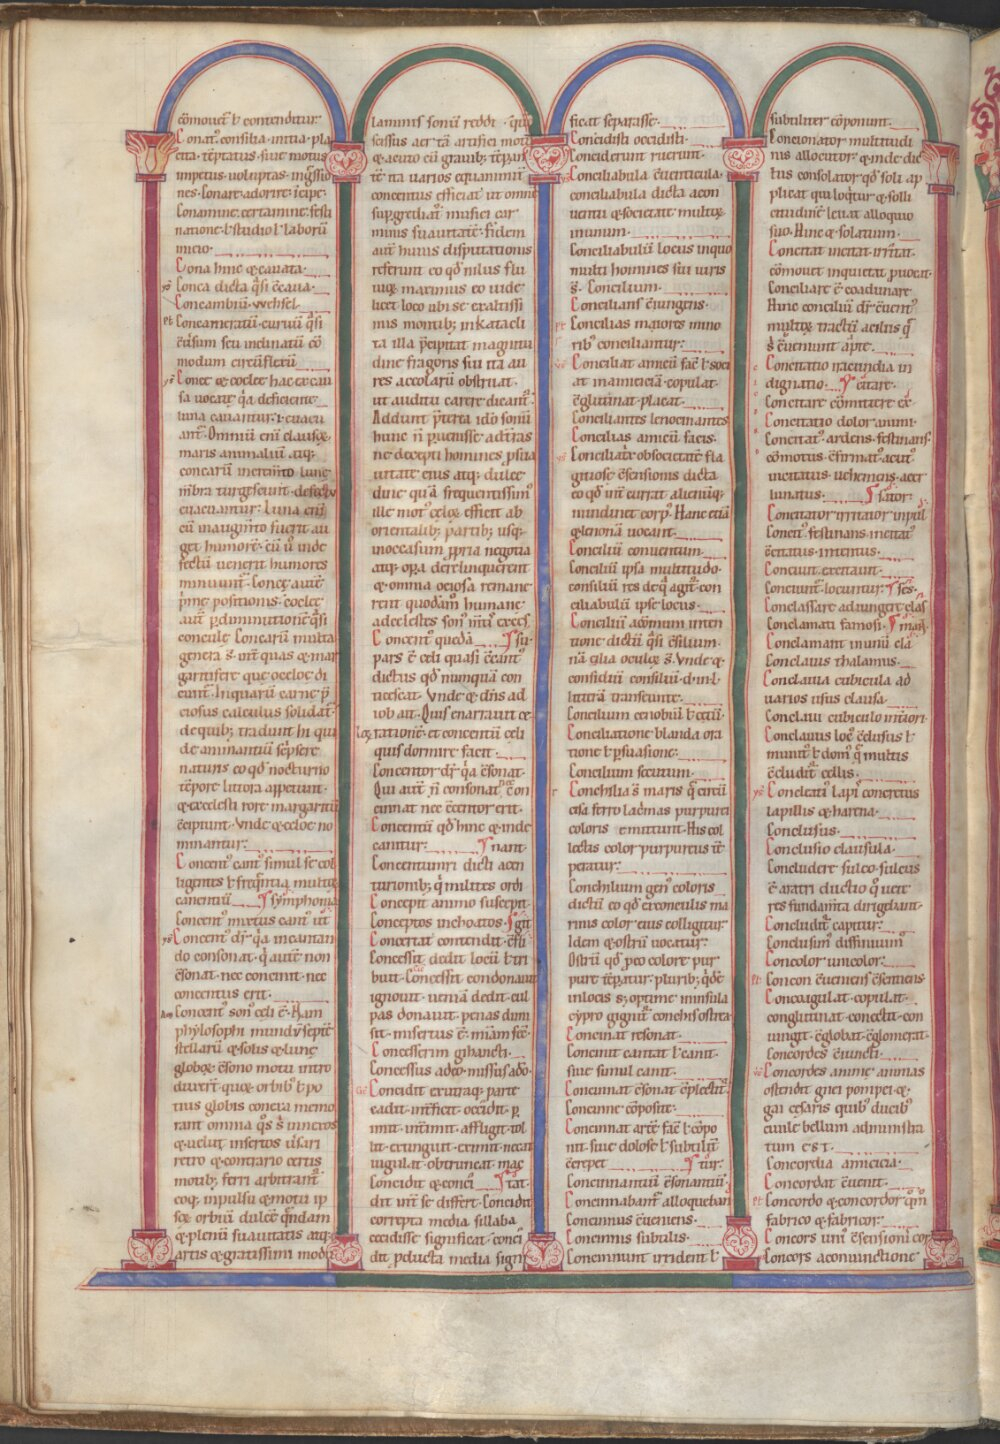 cōmouet̄ ł contenditur
Conat᷒ consilia initia pla
cita tēptatus siue motus
impetus uoluptas ingressio
nes Conare adorire incipe
Conamine certamine festi
natione ł studio ł laborū
inicio
Cona hinc & cauata
Conca dicta q̄si c̄caua
Concambiū wehsel
Concameratū curuū q̄si
modum circūflexū
Conce & coclee hac ex cau
sa uocate q̄a deficiente
luna cauantur i euacu
ant᷒ Omniū eni clausoꝝ
maris animaliū atq;
concarū incremēto lune
mēbra turgescunt defectu
euacuantur Luna eni
cū in augmēto fuerit au
get humorē cū ū in de
fectū uenerit humores
minuunt᷒ Concę autē
autē p diminutionē q̄si
concule Concarū multa
genera s̄ int̄ quas & mar
garitifere que occloe di
cunt᷒ In quarū carne p̄
ciosus calculus solidat᷒
de quib; tradunt hi qui
de animantiū sc̄psere
naturis eo qd̄ nocturno
tēpore littora appetunt
& ex celesti rore margaritū
c̄cipiunt Vnde & cloe no
minantur
Concent᷒ cant᷒ simul se col
ligentes ł frequentia multoꝝ
canentiū symphonia
Concent᷒ mixtus cant᷒
Concent᷒ dr̄ q̄a in cantan
do consonat q̄ autē non
c̄sonat nec concinit nec
concentus erit
Concent᷒ son᷒ celi ē Nam
phylosophi mundū septē
stellarū & solis & lunę
globoꝝ c̄sono motu intro
duxer̄t quoꝝ orbib᷒ ł po
tius globis conexa memo
rant omnia q̄s s̄ innexos
& uelut insertos ūsari
retro & contrario ceteris
motib; ferri arbitrant᷒
eoq; inpulsu & motu ip
soꝝ orbiū dulcē q̄ndam
& plenū suauitatis atq;
artis & gratissimi modu
laminis sonū reddi quo
scissus aer tā artifici motu
& acuto cū grauib; tēpan
te ita uarios equanimit
concentus efficiat ut omnē
sup̄grediat᷒ musici car
minis suauitatē fidem
autē huius disputationis
referunt eo qd̄ nilus flu
uioꝝ maximus eo uide
licet loco ubi se ex altissi
mis montib; in Katacli
ta illa p̄cipitat magnitu
dine fragoris sui ita au
res accolarū obstruat
ut auditu carere dicant᷒
Addunt p̄terea ido sonū
hunc n̄ p̄uenisse ad t̄ras
ne decepti homines p̄ sua
uitate eius atq; dulce
dine quā frequentissim᷒
ille mot᷒ celoꝝ efficit ab
orientalib; partib; usq;
in occasum p̄pria negotia
atq; op̄a derelinquerent
& omnia ociosa remane
rent quodam humane
ad celestes son᷒
Concent᷒ quedā su
pars ē celi quasi c̄cant᷒
dictus qd̄ nunquam con
ticescat Vnde & dn̄s ad
iob ait Quis enarrauit ce
loꝝ rationē et concentū celi
quis dormire faciet
Concentor dr̄ q̄a c̄sonat
Qui aut̄ n̄ consonat nec con
cinnat nec c̄centor erit
Concentū qd̄ hinc & inde
canitur nant
Concenturi dicti a cen
turionib; q̄ milites ordi
Concepit animo suscepit
Conceptos inchoatos
Concertat contendit
Concessit dedit locū ł tri
buit Concessit condonauit
ignouit ueniā dedit cul
pas donauit penas dimi
sit misertus ē
Concesserim
Concessus adeo missus ado
Concidit ex utraq; parte
cadit int̄ficit occidit p̄
imit int̄imit affligit tol
lit extinguit exmit necat
iugulat obtruncat mac
Concidit & conci tat
dit int̄ se differt Concidit
correpta media sillaba
cecidisse significat conci
dit p̄ducta media signi
ficat separasse
Concidisti occidisti
Conciderunt ruerunt
Conciliabula c̄uenticula
conciliabula dicta a con
uentu & societate multoꝝ
in unum
Conciliabulū locus in quo
multi homines seu uiris
s̄ Concilium
Concilians c̄iungens
Concilias maiores mino
rib᷒ conciliantur
Conciliat amicū fac̄ ł soci
at in amiciciā copulat
c̄glutinat placat
Conciliantes lenocinantes
Concilias amicū facis
Conciliat᷒ obsocietatē fla
gitiose c̄sensionis dicta
eo qd̄ int̄currat alicuiꝗ;
mundinet corp᷒ Hanc etiā
& lenonā uocant
Conciliū conuentum
Conciliū ipsa multitudo
consiliū res de q̄ agit᷒ con
ciliabulū ipse locus
Conciliū a cōmun inten
tione dictū q̄si c̄silium
nā cilia oculoꝝ s̄ Vnde &
considiū consiliū d in l
litterā transeunte
Concilium cenobiū ł cetū
Conciliatione blanda ora
tione ł p̄suasione
Concilium secutum
Conchilia s̄ maris q̄ circū
cisa ferro lacrimas purpurei
coloris emittunt His col
lectis color purpureus
peratur
Conchilium gen᷒ coloris
dictū eo qd̄ ex conculis ma
rinis color eius colligitur
Idem & ostrū uocatur
Ostrū qd̄ p̄ eo colore pur
pure tēperatur plurib; q̄de
in locis s; optime in insula
cypro gignit᷒ conchis ostrea
Concinat resonat
Concinit cantat ł canit
siue simul canit
Concinnat c̄sonat c̄plectit᷒
Concinne cōposite
Concinnat arte fac̄ ł cōpo
nit siue dolose ł subtilit̄
c̄crepet tur
Concinnantiū c̄sonantiū
Concinnabant᷒ alloquebant᷒
Concinnus c̄ueniens
Concinnus subtilis
Concinnunt irrident ł
subtiliter cōponunt
Concionator multitudi
nis allocutor & inde dic
tus consolator qd̄ soli ap
plicat qui loq̄tur & solli
citudinē leuat alloquio
suo Hinc & solatium
Concitat incitat irritat
cōmouet inquietat p̄uocat
Conciliare ē coadunare
Hinc conciliū dr̄ c̄uent᷒
multoꝝ tractū a ciliis q̄
s̄ c̄ueniunt
Concitatio iracundia in
dignatio citare
Concitare cōmittere
Concitatio dolor animi
Concitat᷒ ardens festinans
cōmotus c̄firmat᷒ acut᷒
incitatus uehemens acer
lunatus tator
Concitator irritator inpul
Concit᷒ festinans incitat᷒
c̄citatus intentus
Conciunt excitant
Conciunt᷒ locuntur
Conclassare adiungere clas
Conclamati famosi
Conclamant
Conclauus thalamus
Conclauia cubicula ad
uarios usus clausa
Conclaui cubiculo int̄iori
Conclauus loc᷒ c̄clusus ł
munit᷒ ł dom᷒ q̄ multis
c̄cludit᷒ cellis
lapillis & harena
Conclusus
Conclusio clausula
Concludere sulco sulcus
ē aratri ductio q̄ uete
res fundam̄ta dirigebant
Concludit᷒ capitur
Conclusim᷒ diffiniuim᷒
Concolor unicolor
Concon c̄ueniens c̄sentiens
Concoagulat copulat
conglutinat connectit con
iungit c̄globat c̄glomerat
Concordes c̄iuncti
Concordes anime animas
ostendit gnei pompei &
gai cesaris quib᷒ ducib᷒
ciuile bellum administra
tum est
Concordia amicicia
Concordat c̄uenit
Concordo & concordor
fabrico & fabricor
Concors uni᷒ c̄sensioni cor
Concors a coniunctione